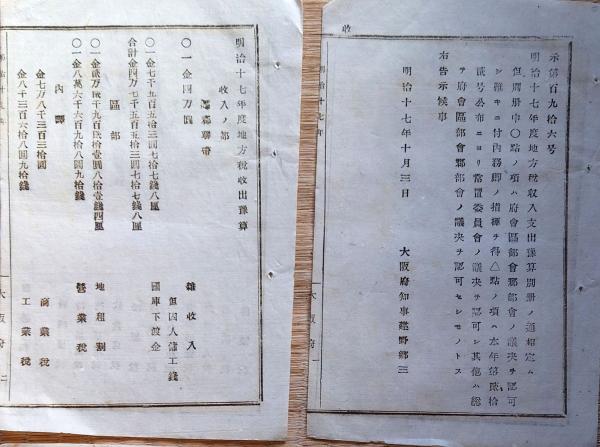 収
示第百九拾六号
明治十七年度地方税収入支出豫算別冊ノ通相定ム
但別冊中〇点ノ項ハ府會區部會郡部會ノ議决ヲ認可
シ難キニ付内務卿ノ指揮ヲ得△点ノ項ハ本年第陸拾
貳号公布ニヨリ常置委員會ノ議决ヲ認可シ其他ハ総
テ府會區部會郡部會ノ議决ヲ認可セシモノトス
右告示候事
明治十七年十月三日
大阪府知事建野郷三
明治十七年
大阪府一
明治十七年度地方税収出豫算
収入ノ部
郡區聯帯
〇一金四万圓
雑収入
但囚人傭工錢
〇一金七千五百五拾三圓七拾七錢八厘
國庫下渡金
合計金四万七千五百五拾三圓七拾七錢八厘
區部
地租割
〇一金八萬六千六百九拾八圓九拾錢
營業税
内譯
金七万八千三百三拾圓
商業税
金八千三百六拾八圓九拾錢
工業税
大阪府二